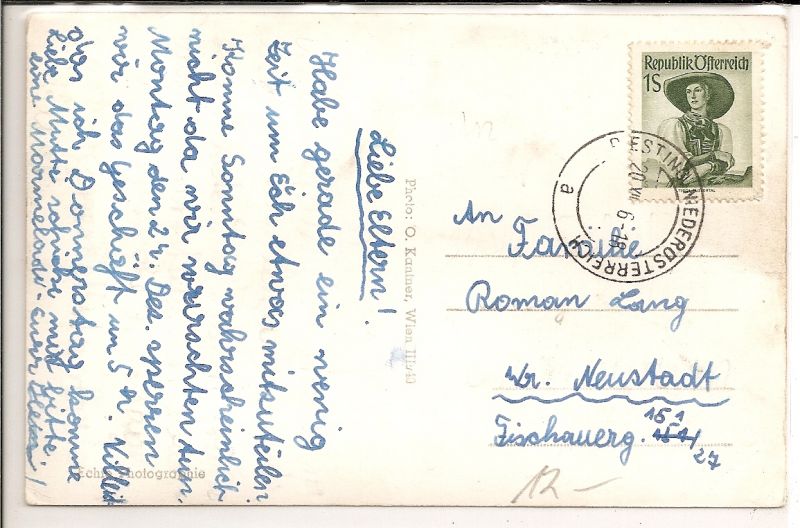 Liebe Eltern!
Habe gerade ein wenig
Zeit um Euch etwas mitzuteilen.
Komme Sonntag wahrscheinlich
nicht da wir
Montag den 24. Dez. sperren
wir das Geschäft um 5
das ich Donnerstag komme
Liebe Mutter mit bitte
eine Marmelade. Euer
Echte Photographie
Photo: O. Kantner, Wien III/40
Republik Österreich
1S
OESTING NIEDERÖSTERREICH
a
An
Familie
Roman Lang
Wr. Neustadt
Fischauerg. 151
/27
12-